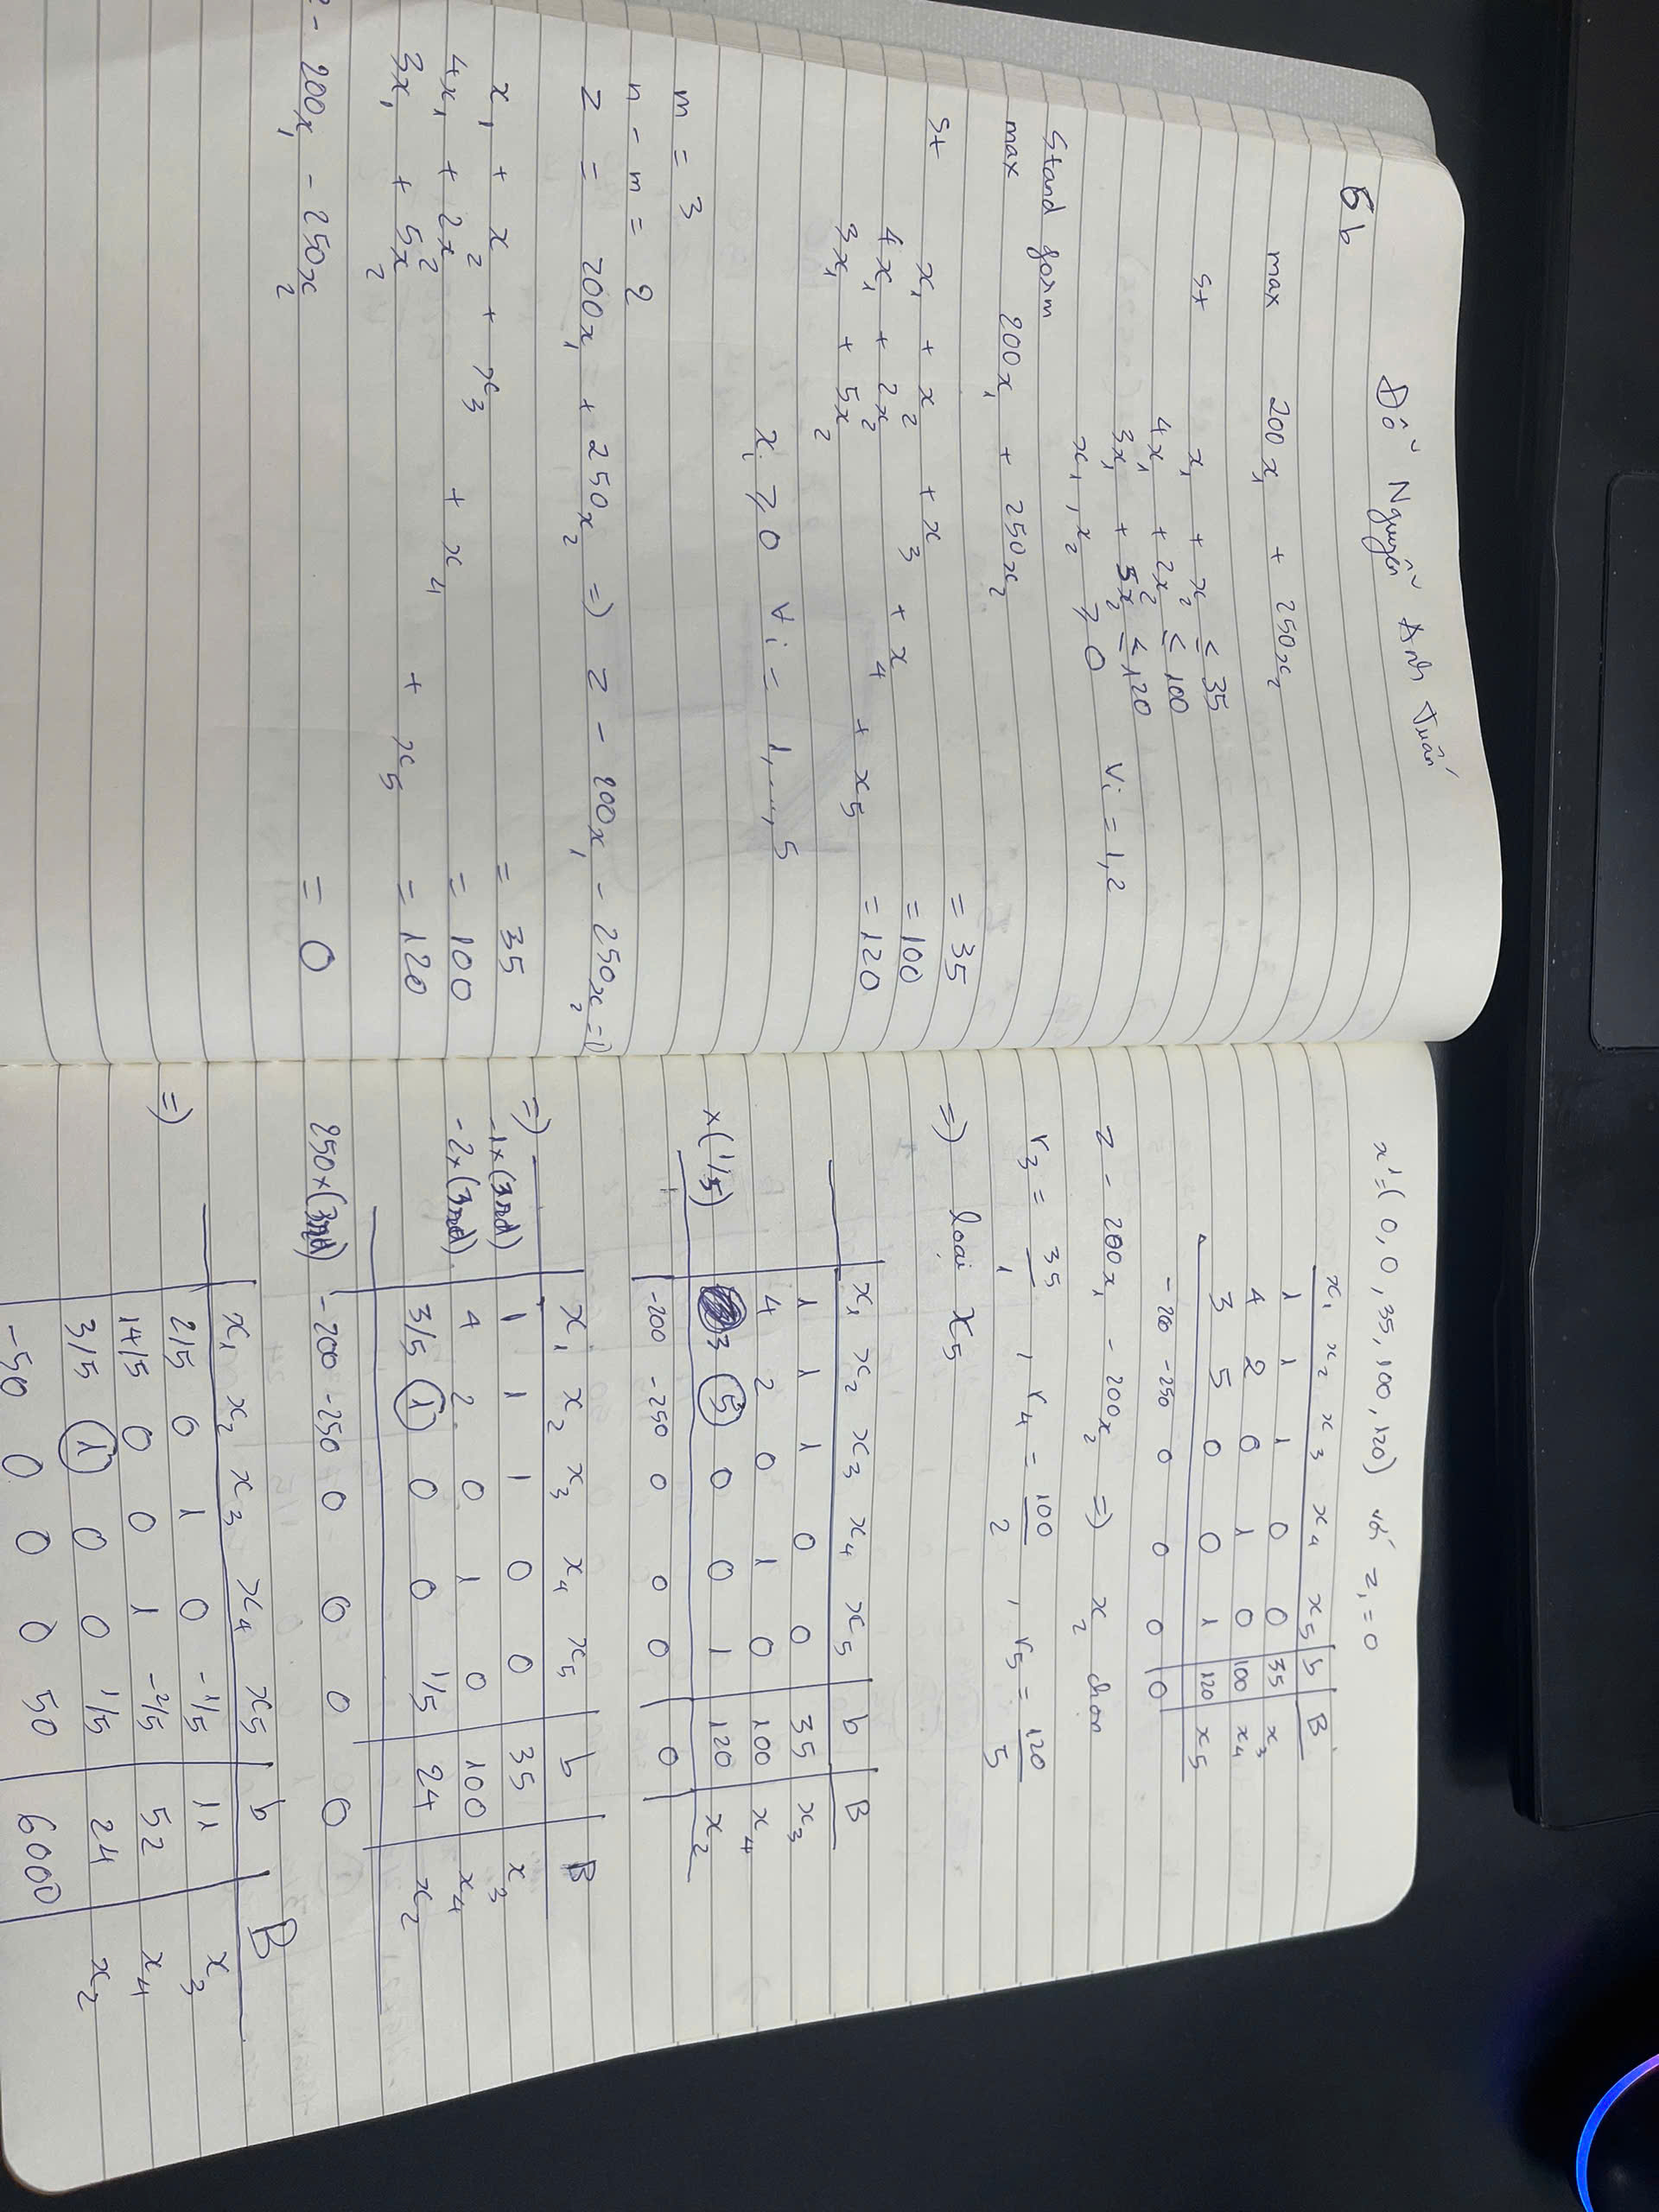 6b
Đỗ Nguyễn Anh Tuấn
max 200x₁ + 250x₂
st x₁ + x₂ ≤ 35
4x₁ + 2x₂ ≤ 100
3x₁ + 5x₂ ≤ 120
x₁, x₂ ⩾ 0 ∀i = 1,2
Stand form
max 200x₁ + 250x₂
st x₁ + x₂ + x₃ = 35
4x₁ + 2x₂ + x₄ = 100
3x₁ + 5x₂ + x₅ = 120
xᵢ ⩾ 0 ∀i = 1,...,5
m = 3
n - m = 2
z = 200x₁ + 250x₂ => z - 200x₁ - 250x₂ = 0
x₁ + x₂ + x₃ = 35
4x₁ + 2x₂ + x₄ = 100
3x₁ + 5x₂ + x₅ = 120
z - 200x₁ - 250x₂ = 0
x¹=(0,0,35,100,120) với z₁=0
x₁ x₂ x₃ x₄ x₅ b B
1 1 1 0 0 35 x₃
4 2 0 1 0 100 x₄
3 5 0 0 1 120 x₅
-200 -250 0 0 0 0
z - 200x₁ - 200x₂ => x₂ chọn
r₃ = 35/1 , r₄ = 100/2 , r₅ = 120/5
=) loại x₅
x₁ x₂ x₃ x₄ x₅ b B
1 1 1 0 0 35 x₃
4 2 0 1 0 100 x₄
x(1/5) 3 5 0 0 1 120 x₂
-200 -250 0 0 0 0
=) x₁ x₂ x₃ x₄ x₅ b B
-1x(3rd) 1 1 1 0 0 35 x₃
-2x(3rd) 4 2 0 1 0 100 x₄
3/5 1 0 0 1/5 24 x₂
250x(3rd) -200 -250 0 0 0 0
x₁ x₂ x₃ x₄ x₅ b B
2/5 0 1 0 -1/5 11 x₃
=) 14/5 0 0 1 -2/5 52 x₄
3/5 1 0 0 1/5 24 x₂
-50 0 0 0 50 6000